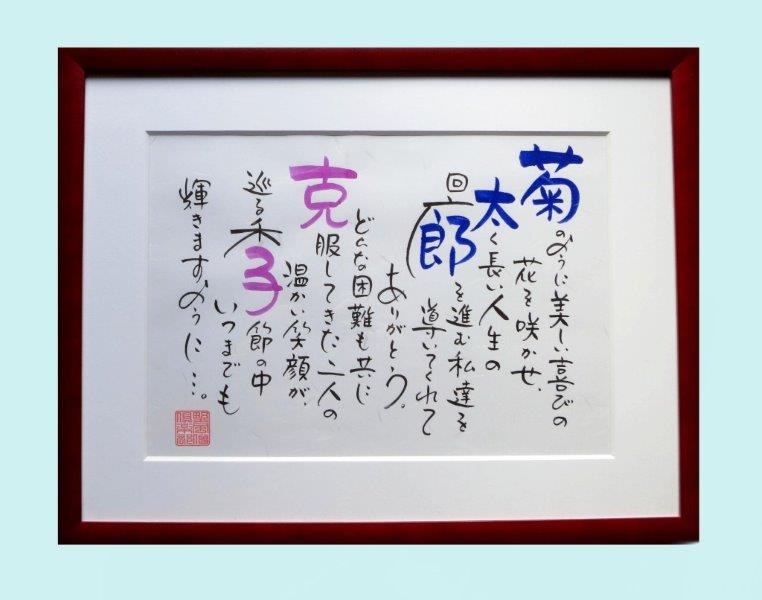 菊のように美しい喜びの
花を咲かせ、
太く長い人生の
回廊を進む私達を
導いてくれて
ありがとう。
どんな困難も共に
克服してきた二人の
温かい笑顔が、
巡る季節の中
いつまでも
輝きますように…。